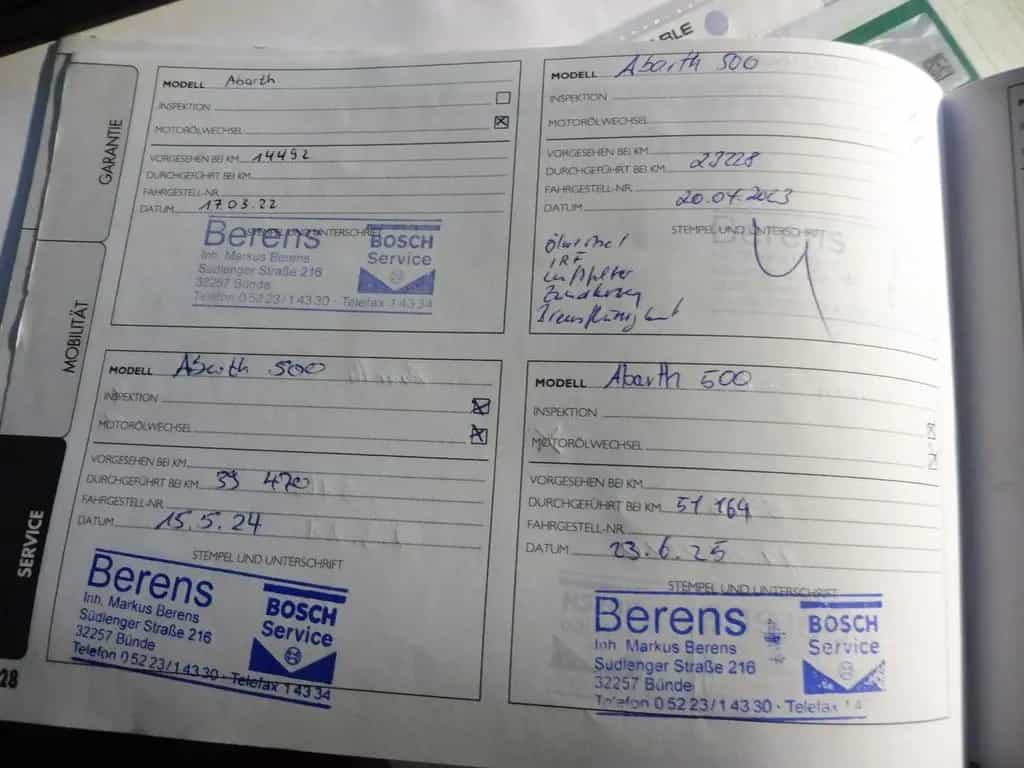 ABLE
GARANTIE
MOBILITÄT
SERVICE
28
MODELL Abarth
INSPEKTION
MOTORÖLWECHSEL
VORGESEHEN BEI KM 14492
DURCHGEFÜHRT BEI KM
FAHRGESTELL-NR.
DATUM 17.03.22
STEMPEL UND UNTERSCHRIFT
Berens
Inh. Markus Berens
Südlenger Straße 216
32257 Bünde
Telefon 0 52 23/1 43 30 - Telefax 1 43 34
BOSCH
Service
MODELL Abarth 500
INSPEKTION
MOTORÖLWECHSEL
VORGESEHEN BEI KM
DURCHGEFÜHRT BEI KM
FAHRGESTELL-NR.
DATUM 20.04.2023
STEMPEL UND UNTERSCHRIFT
Berens
Ölwechsel
IRF
Luftfilter
Zündkerzen
Bremsflüssigkeit
MODELL Abarth 500
INSPEKTION
MOTORÖLWECHSEL
VORGESEHEN BEI KM
DURCHGEFÜHRT BEI KM 39 470
FAHRGESTELL-NR.
DATUM 15.5.24
STEMPEL UND UNTERSCHRIFT
Berens
Inh. Markus Berens
Südlenger Straße 216
32257 Bünde
Telefon 0 52 23/1 43 30 - Telefax 1 43 34
BOSCH
Service
MODELL Abarth 500
INSPEKTION
MOTORÖLWECHSEL
VORGESEHEN BEI KM
DURCHGEFÜHRT BEI KM 51 164
FAHRGESTELL-NR.
DATUM 23.6.25
STEMPEL UND UNTERSCHRIFT
Berens
Inh. Markus Berens
Südlenger Straße 216
32257 Bünde
Telefon 0 52 23/1 43 30 · Telefax 1 4
BOSCH
Service